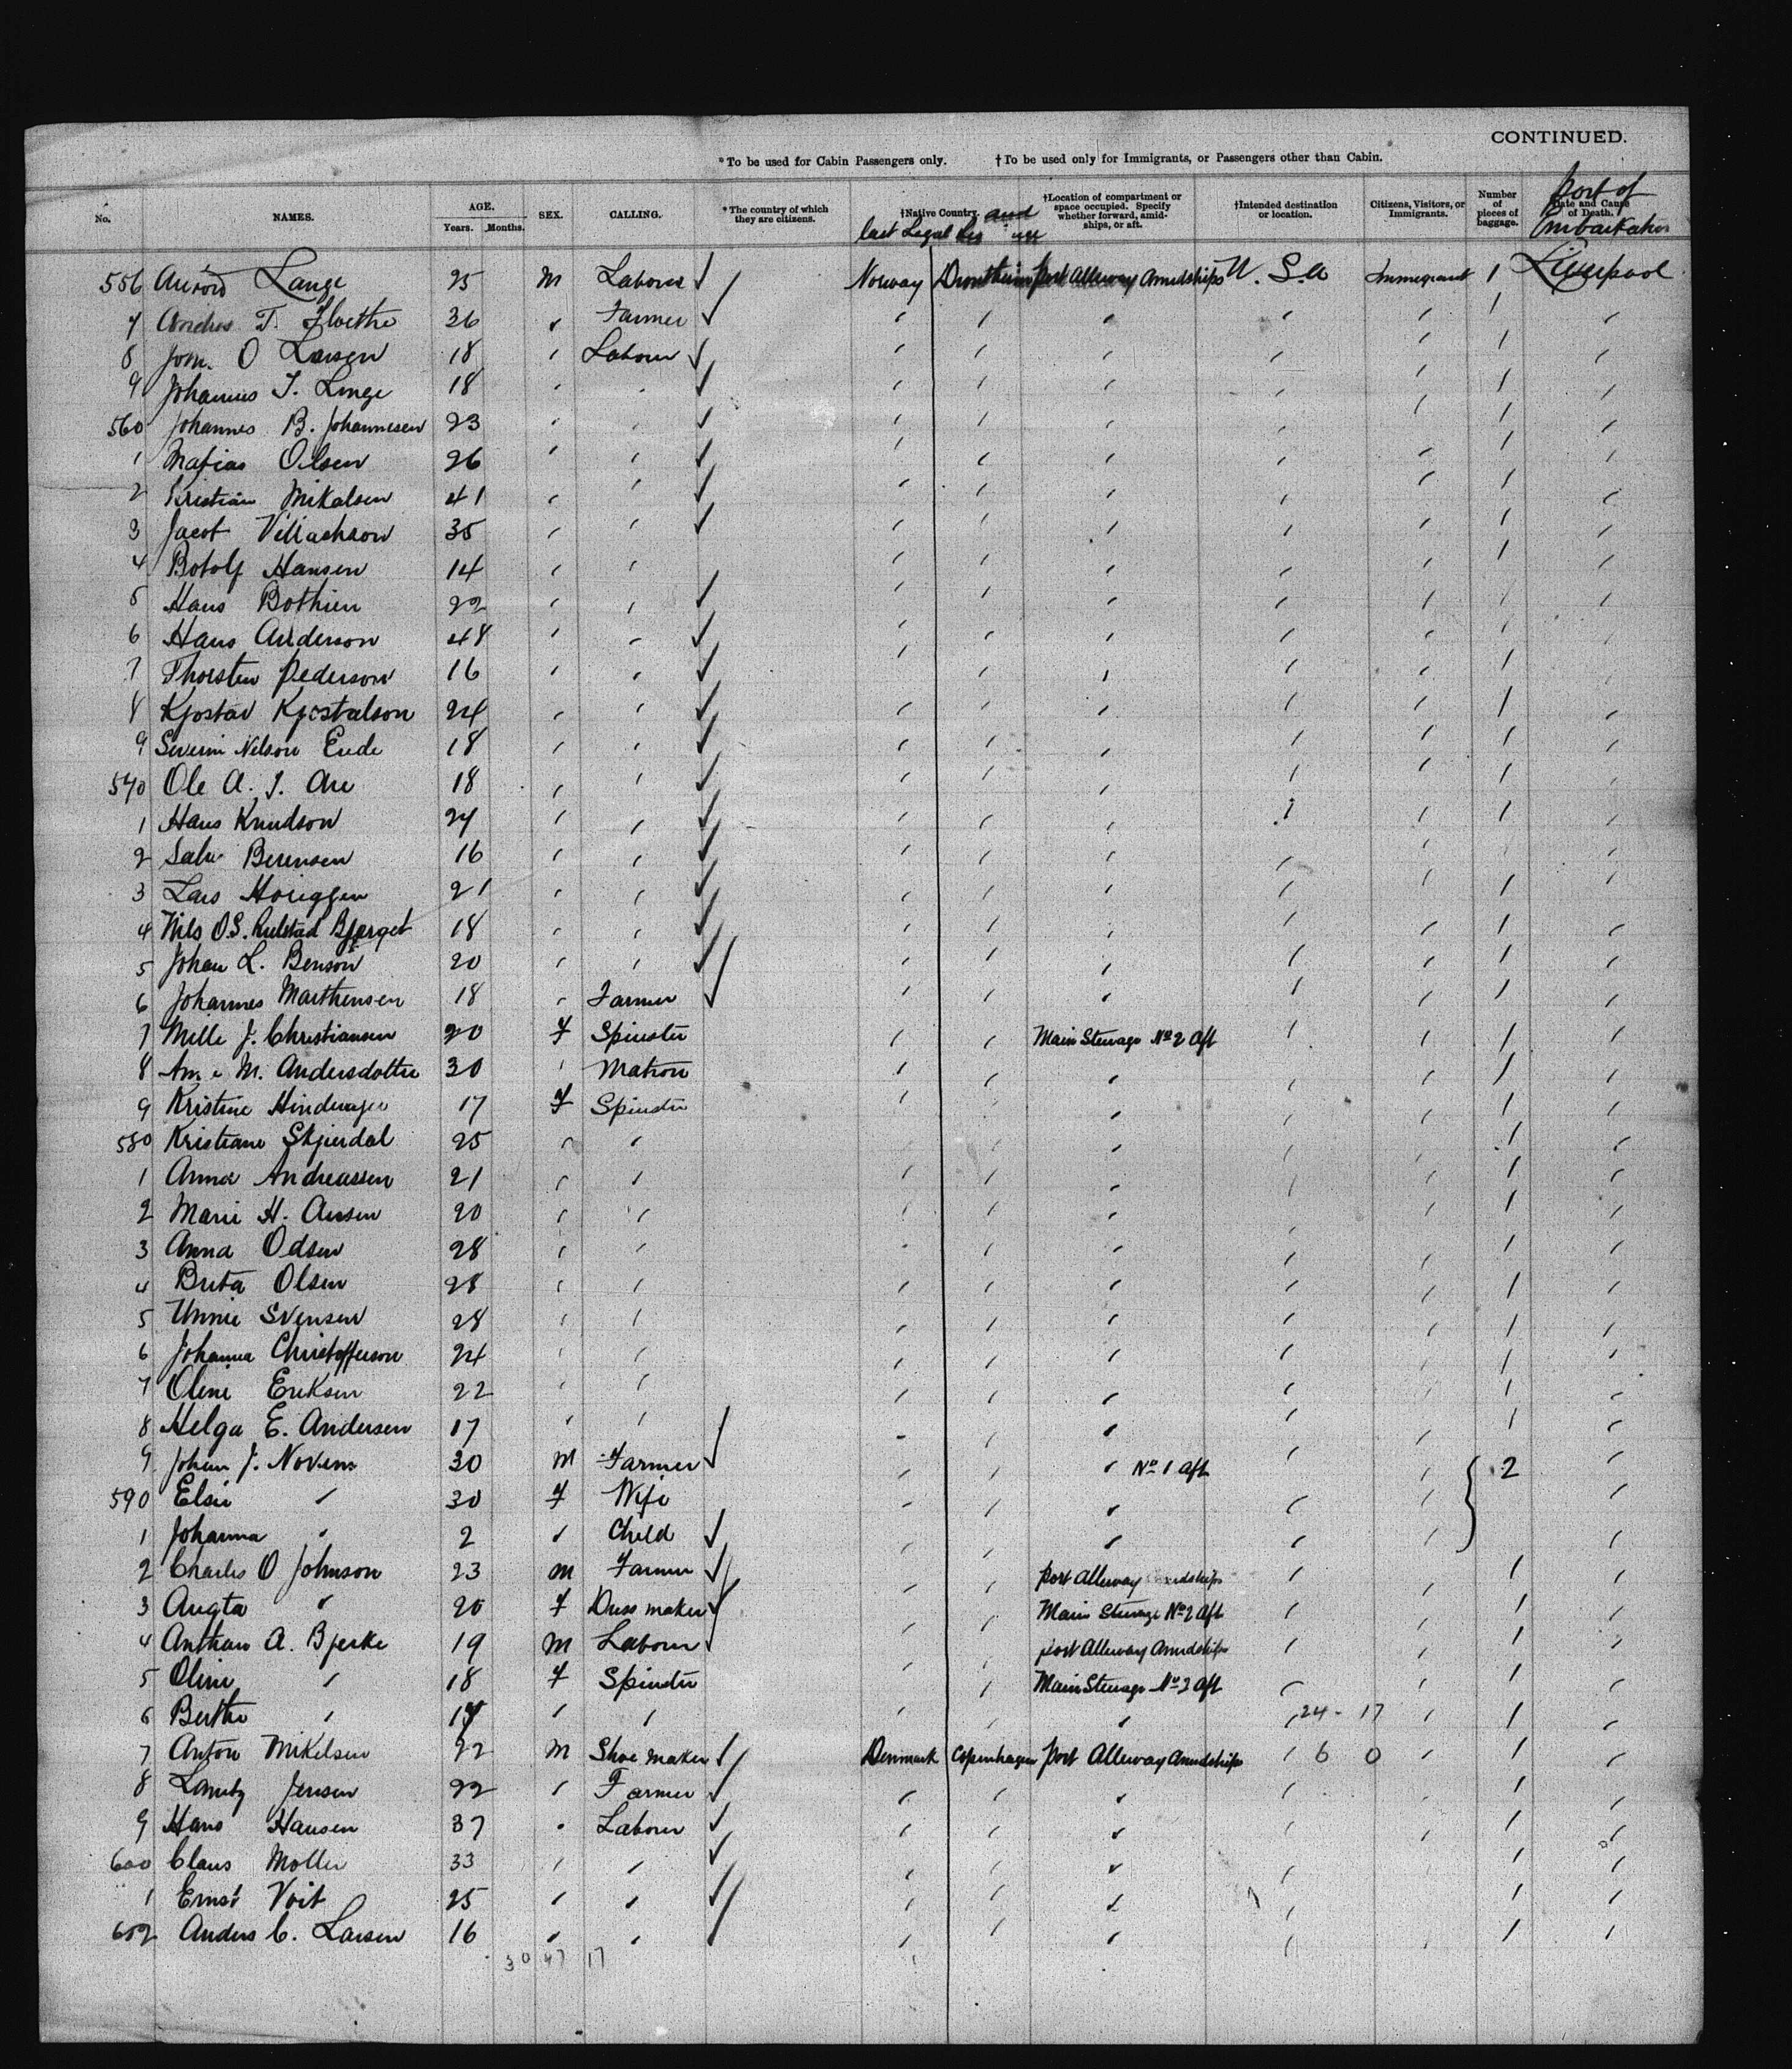 CONTINUED.
*To be used for Cabin Passengers only. †To be used only for Immigrants, or Passengers other than Cabin.
No. NAMES. AGE. Years. Months. SEX. CALLING. *The country of which they are citizens. †Native Country. and last Legal †Location of compartment or space occupied. Specify whether forward, amidships, or aft. †Intended destination or location. Citizens, Visitors, or Immigrants. Number of pieces of baggage. Date and Cause of Death. Port of Embarkation
556 Lange 25 M Laborer ✓ Norway Drontheim Port Alleway Amidships U. S. a Immegrant 1 Liverpool
7 Andrus T. 36 " Farmer ✓ " " " " " 1 "
8 John. O Larsen 18 " Labour ✓ " " " " " 1 "
9 Johannes T. Linge 18 " " ✓ " " " " " 1 "
560 Johannes B. Johannesen 23 " " ✓ " " " " " 1 "
1 Mafias Olsen 26 " " ✓ " " " " " 1 "
2 Kristian Mikalsen 41 " " ✓ " " " " " 1 "
3 Jacob 35 " " ✓ " " " " " 1 "
4 Botolf Hansen 14 " " " " " " " 1 "
5 Hans Bothien 22 " " ✓ " " " " " 1 "
6 Hans Anderson 48 " " ✓ " " " " " 1 "
7 Thorsten Pederson 16 " " ✓ " " " " " 1 "
8 Kjostav Kjostalson 24 " " ✓ " " " " " 1 "
9 Severin Nelson Eide 18 " " ✓ " " " " " 1 "
570 Ole A. J. Are 18 " " ✓ " " " " " 1 "
1 Hans Knudson 24 " " ✓ " " " " " 1 "
2 Berensen 16 " " ✓ " " " " " 1 "
3 Lars 21 " " ✓ " " " " " 1 "
4 Nils O.S. Rulstad Bjerget 18 " " ✓ " " " " " 1 "
5 Johan L. Benson 20 " " ✓ " " " " " 1 "
6 Johannes Marthensen 18 " Farmer ✓ " " " " " 1 "
7 Mille J. Christiansen 20 F Spinster " " Main Steerage No 2 Aft " " 1 "
8 M. Andersdotter 30 " Matron " " " " " 1 "
9 Kristine 17 F Spinster " " " " " 1 "
580 Kristiane Skjierdal 25 " " " " " " " 1 "
1 Anna Andreassen 21 " " " " " " " 1 "
2 Marie H. Aursen 20 " " " " " " " 1 "
3 Anna Odsen 28 " " " " " " " 1 "
4 Brita Olsen 28 " " " " " " " 1 "
5 Unnie Svensen 28 " " " " " " " 1 "
6 Johanna Christofferson 24 " " " " " " " 1 "
7 Oline Eriksen 22 " " " " " " " 1 "
8 Helga E. Andersen 17 " " " " " " " 1 "
9 Johan J. Novem 30 M Farmer ✓ " " " No 1 Aft " " 2 "
590 Elsie " 30 F Wife " " " " " "
1 Johanna " 2 " Child ✓ " " " " " "
2 Charles O Johnson 23 M Farmer ✓ " " Port Alleway Amidships " " 1 "
3 Augta " 20 F Dress maker ✓ " " Main Steerage No 2 Aft " " 1 "
4 A. Bjerke 19 M Labour ✓ " " Port Alleway Amidships " " 1 "
5 Oline " 18 F Spinster " " Main Steerage No 2 Aft " " 1 "
6 Berthe " 17 " " " " " " 24 - 17 " 1 "
7 Anton Mikelsen 22 M Shoe maker ✓ Denmark Copenhagen Port Alleway Amidships " 6 0 " 1 "
8 Jensen 22 " Farmer ✓ " " " " " 1 "
9 Hans Hansen 37 " Labour ✓ " " " " " 1 "
600 Claus Moller 33 " " ✓ " " " " " 1 "
1 Ernst Voit 25 " " ✓ " " " " " 1 "
602 Anders C. Larsen 16 " " ✓ " " " " " 1 "
30 47 17